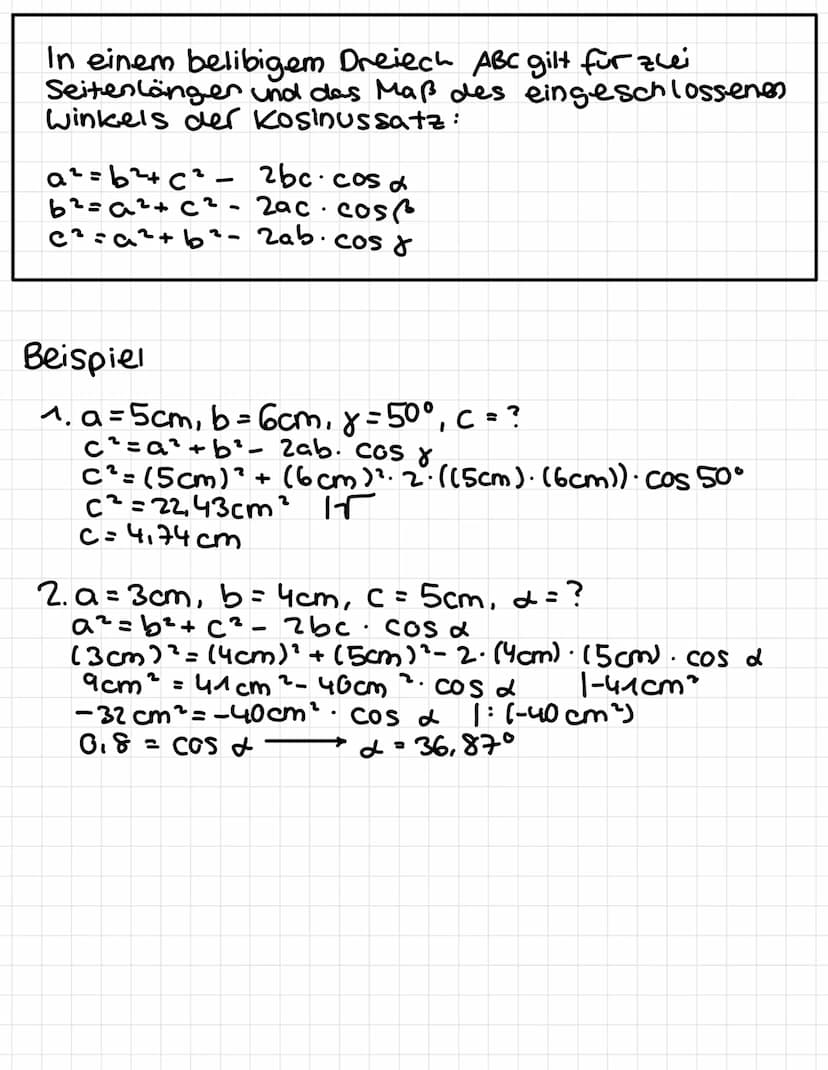 In einem belibigem Dreieck ABC gilt für zwei
Seitenlängen und das Maß des eingeschlossenen
Winkels der Kosinussatz:
a² = b² + c² - 2bc · cos α
b² = a² + c² - 2ac · cos β
c² = a² + b² - 2ab · cos γ
Beispiel
1. a = 5cm, b = 6cm, γ = 50°, c = ?
c² = a² + b² - 2ab · cos γ
c² = (5cm)² + (6cm)² · 2 · ((5cm) · (6cm)) · cos 50°
c² = 22,43cm² |√
c = 4,74 cm
2. a = 3cm, b = 4cm, c = 5cm, α = ?
a² = b² + c² - 2bc · cos α
(3cm)² = (4cm)² + (5cm)² - 2 · (4cm) · (5cm) · cos α
9cm² = 41cm² - 40cm² · cos α |-41cm²
-32cm² = -40cm² · cos α |: (-40cm²)
0,8 = cos α ⟶ α = 36,87°